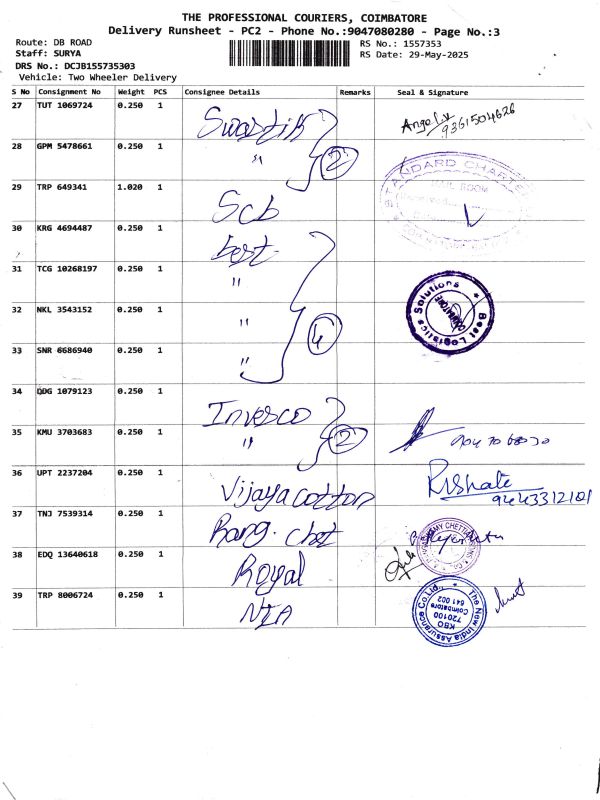 THE PROFESSIONAL COURIERS, COIMBATORE
Delivery Runsheet - PC2 - Phone No.:9047080280 - Page No.:3
Route: DB ROAD
RS No.: 1557353
Staff: SURYA
RS Date: 29-May-2025
DRS No.: DCJB155735303
Vehicle: Two Wheeler Delivery
S No Consignment No Weight PCS Consignee Details Remarks Seal & Signature
27 TUT 1069724 0.250 1 Swastik 9361504626
28 GPM 5478661 0.250 1 " 2
STANDARD CHARTER
MAIL ROOM
29 TRP 649341 1.020 1 Scb
30 KRG 4694487 0.250 1 best
31 TCG 10268197 0.250 1 "
32 NKL 3543152 0.250 1 " 4
Best Logistics Solutions
COIMBATORE
33 SNR 6686940 0.250 1 "
34 QDG 1079123 0.250 1 Invesco
35 KMU 3703683 0.250 1 " 2
36 UPT 2237204 0.250 1 Vijaya cotton
37 TNJ 7539314 0.250 1 Rang. chet
38 EDQ 13640618 0.250 1 Royal
39 TRP 8006724 0.250 1 NIA
The New India Assurance Co.Ltd.
KBO
720100
Coimbatore
641 002